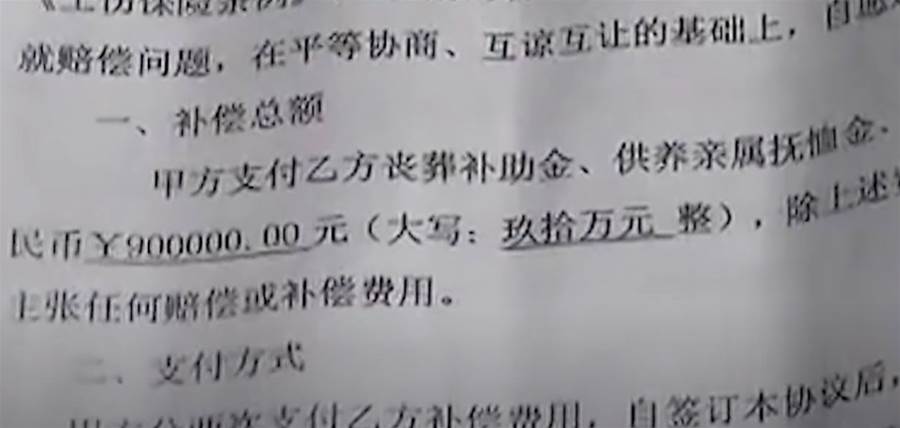 《工伤保险条例》
就赔偿问题，在平等协商、互谅互让的基础上，自愿
一、补偿总额
甲方支付乙方丧葬补助金、供养亲属抚恤金、
民币￥900000.00元（大写：玖拾万元 整），除上述
主张任何赔偿或补偿费用。
二、支付方式
甲方分两次支付乙方补偿费用，自签订本协议后，